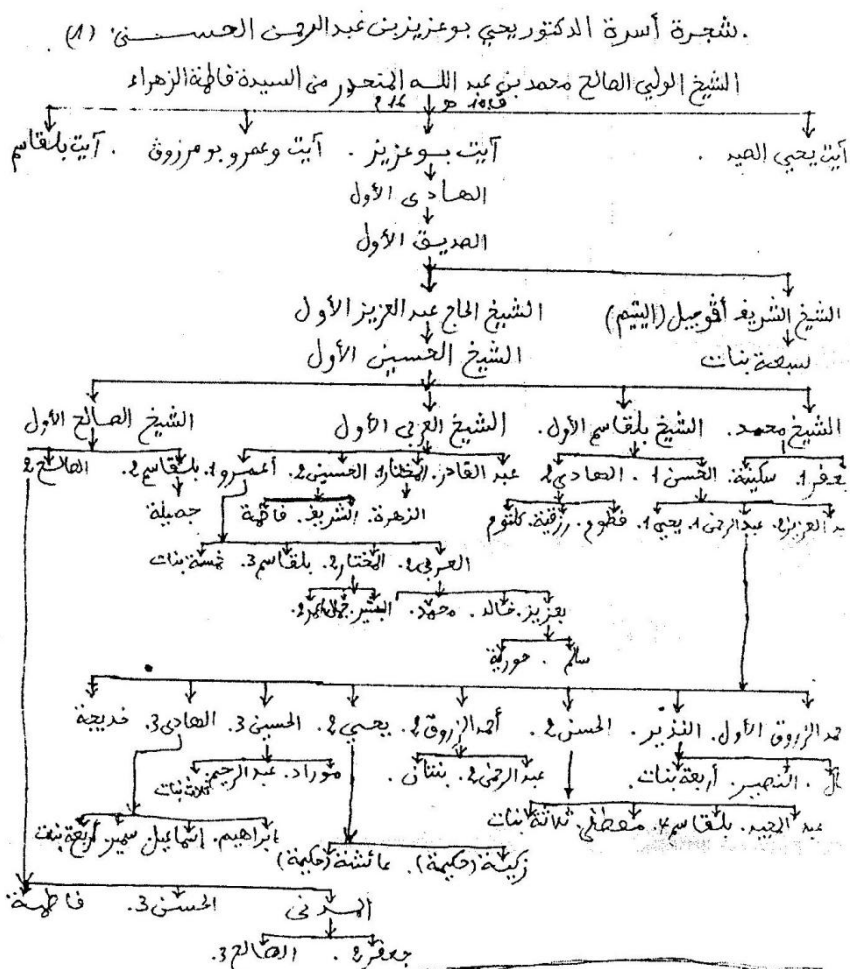 شجرة أسرة الدكتور يحيى بوعزيز بن عبد الرحمن الحسني (1)
الشيخ الولي الصالح محمد بن عبد الله المنحدر من السيدة فاطمة الزهراء
آيت يحيى الصيد . آيت بوعزيز . آيت وعمر و بومرزوق . آيت بلقاسم
الهادي الأول
الصديق الأول
الشيخ الشريف أڤوجيل (اليتيم) الشيخ الحاج عبد العزيز الأول
سبعة بنات الشيخ الحسين الأول
الشيخ محمد. الشيخ بلقاسم الأول. الشيخ العربي الأول الشيخ الصالح الأول
جعفر 1. سكينة. الحسن 1. الهادي 2 عبد القادر. المختار 1. الحسين 2. أعمرو 1. بلقاسم 2. الصالح 2
العزيز 2. عبد الرحمن 1. يحيى 1. فطوم. رزقية. كلثوم الزهرة. الشريف. فاطمة جميلة
العربي 2. المختار 2. بلقاسم 3. خمسة بنات
بعزيز. خالد. محمد. البشير.
سالم . حورية
الزروق الأول. النذير. الحسن 2. أحمد الزروق 2. يحيى 2. الحسين 3. الهادي 3. خديجة
. النصير. أربعة بنات. عبد الرحمن 2. بنتان. موراد. عبد الرحيم. ثلاث بنات
عبد المجيد. بلقاسم 4. مصطفى. ثلاثة بنات ابراهيم. إسماعيل. سمير. أربعة بنات
زكية (حكيمة). عائشة (حكيمة)
المدني الحسن 3. فاطمة
جعفر 2. الصالح 3.